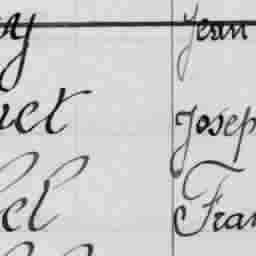 y Jean
uet Josep
el Fran